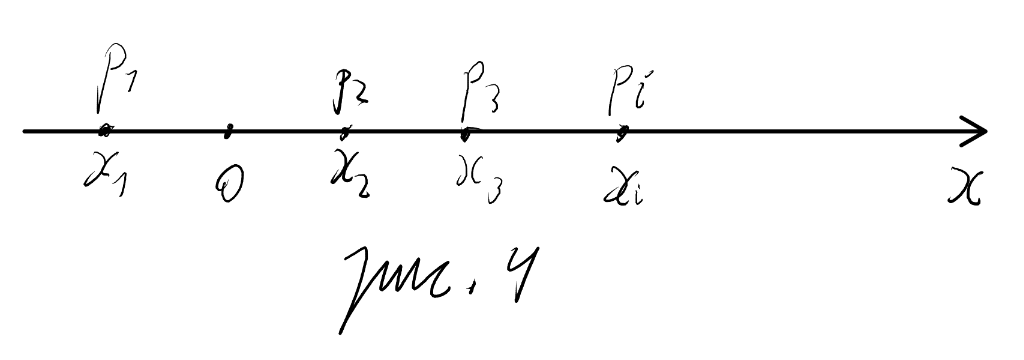 p₁ p₂ p₃ pᵢ
x₁ 0 x₂ x₃ xᵢ x
рис. 4